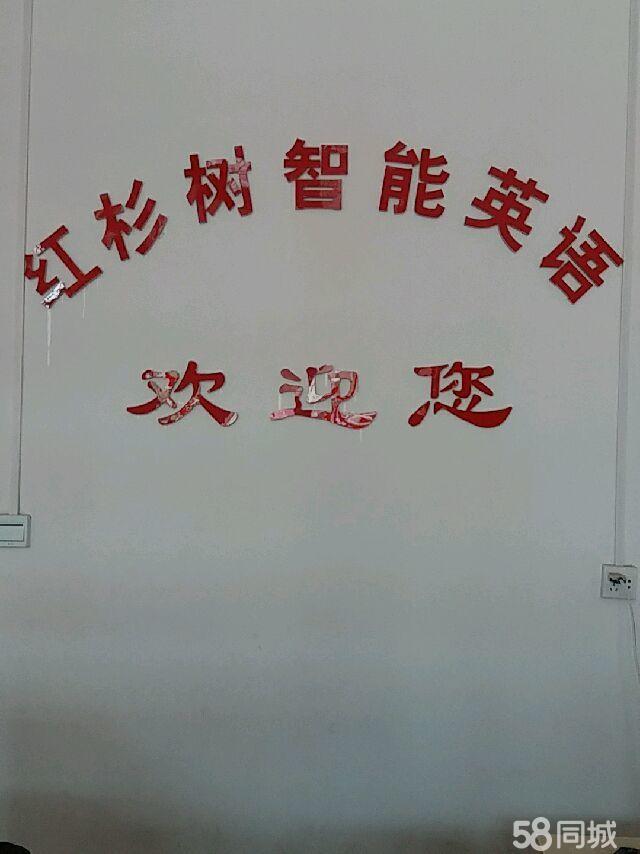 红杉树智能英语
欢迎您
58同城